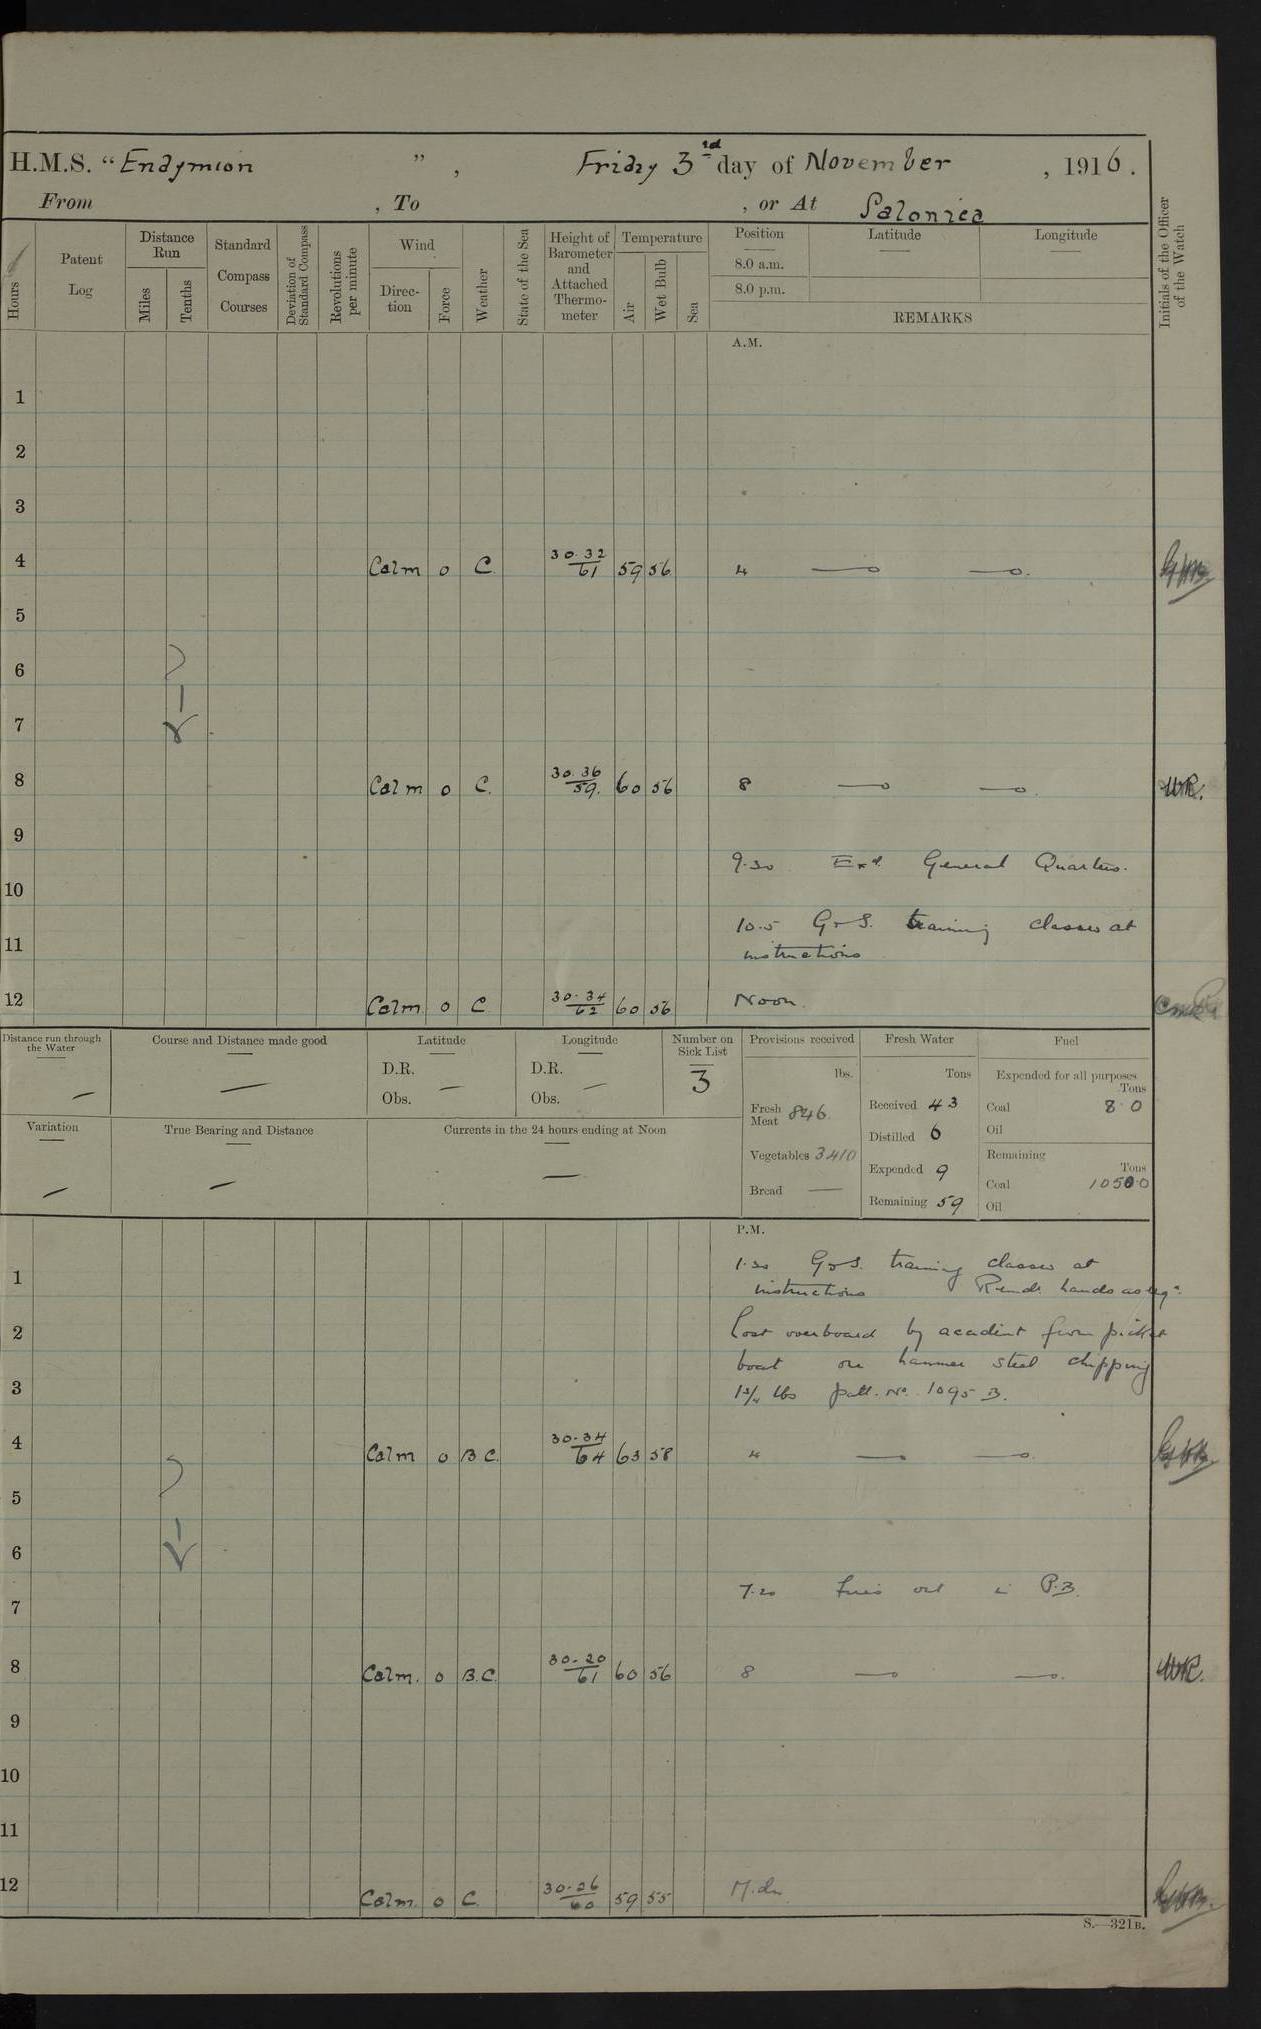 H.M.S. "Endymion", Friday 3rd day of November, 1916.
From , To , or At Salonica
Hours
Patent Log
Distance Run
Miles
Tenths
Standard Compass Courses
Deviation of Standard Compass
Revolutions per minute
Wind
Direc-tion
Force
Weather
State of the Sea
Height of Barometer and Attached Thermo-meter
Temperature
Air
Wet Bulb
Sea
Position
Latitude
Longitude
8.0 a.m.
8.0 p.m.
REMARKS
Initials of the Officer of the Watch
A.M.
1
2
3
4 Calm 0 C. 30.32/61 59 56 4
5
6
7
8 Calm 0 C. 30.36/59. 60 56 8 W.R.
9
9.30 Exd. General Quarters.
10
10.5 G & S. training classes at
11
instructions
12 Calm. 0 C 30.34/62 60 56 Noon.
Distance run through the Water —
Course and Distance made good —
Latitude
D.R.
Obs. —
Longitude
D.R.
Obs. —
Number on Sick List
3
Provisions received
lbs.
Fresh Meat 846
Vegetables 3410
Bread —
Fresh Water
Tons
Received 43
Distilled 6
Expended 9
Remaining 59
Fuel
Expended for all purposes
Tons
Coal 8.0
Oil
Remaining
Tons
Coal 1050.0
Oil
Variation —
True Bearing and Distance —
Currents in the 24 hours ending at Noon —
P.M.
1.30 G & S. training classes at
1
instructions Remdr. hands as req.
2 Lost overboard by accident from picket
boat one hammer steel chipping
3 1¾ lbs patt. No. 1095 B.
4 Calm 0 B.C. 30.34/64 63 58 4
5
6
7.20 Fires out in P.B.
7
8 Calm. 0 B.C. 30.20/61 60 56 8 W.R.
9
10
11
12 Calm. 0 C. 30.26/60 59 55 M.dn.
S.—321B.